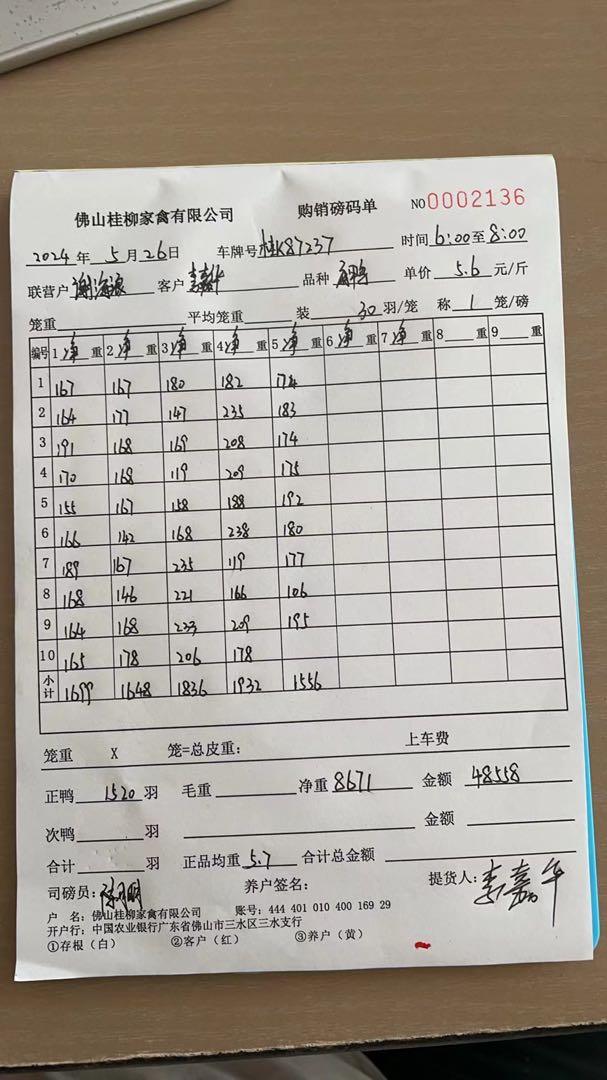 佛山桂柳家禽有限公司 购销磅码单 NO0002136
2024年5月26日 车牌号桂K87237 时间6:00至8:00
联营户 客户 品种 单价5.6元/斤
笼重 平均笼重 装30羽/笼 称1笼/磅
编号 1净重 2净重 3净重 4净重 5净重 6净重 7净重 8重 9重
1 167 167 180 182 174
2 164 177 147 235 183
3 191 168 169 208 174
4 170 168 119 209 175
5 155 167 158 188 192
6 166 142 168 238 180
7 189 167 235 119 177
8 168 146 221 166 106
9 164 168 233 209 195
10 165 178 206 178
小计 1699 1648 1836 1932 1556
笼重 X 笼=总皮重: 上车费
正鸭1520羽 毛重 净重8671 金额48558
次鸭 羽 金额
合计 羽 正品均重5.7 合计总金额
司磅员: 养户签名: 提货人:
户 名: 佛山桂柳家禽有限公司 账号: 444 401 010 400 169 29
开户行: 中国农业银行广东省佛山市三水区三水支行
①存根(白) ②客户(红) ③养户(黄)